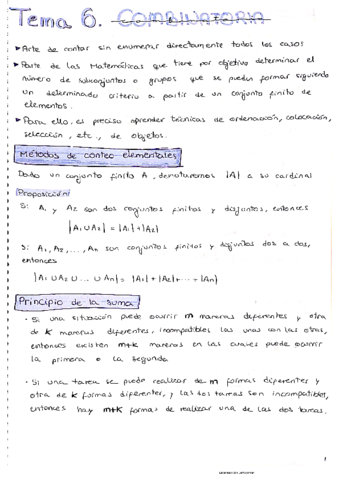 Tema 6. COMBINATORIA
▸ Arte de contar sin enumerar directamente todos los casos
▸ Parte de las Matemáticas que tiene por objetivo determinar el
número de subconjuntos o grupos que se pueden formar siguiendo
un determinado criterio a partir de un conjunto finito de
elementos.
▸ Para ello, es preciso aprender técnicas de ordenación, colocación,
selección, etc., de objetos.
Métodos de conteo elementales
Dado un conjunto finito A, denotaremos |A| a su cardinal
Proposición:
Si A₁ y A₂ son dos conjuntos finitos y disjuntos, entonces
|A₁∪A₂| = |A₁|+|A₂|
Si A₁, A₂, ..., An son conjuntos finitos y disjuntos dos a dos,
entonces
|A₁∪A₂ ∪ ... ∪ An| = |A₁|+|A₂|+...+|An|
Principio de la suma
· Si una situación puede ocurrir m maneras diferentes y otra
de k maneras diferentes, incompatibles las unas con las otras,
entonces existen m+k maneras en las cuales puede ocurrir
la primera o la segunda
· Si una tarea se puede realizar de m formas diferentes y
otra de k formas diferentes, y las dos tareas son incompatibles,
entonces hay m+k formas de realizar una de las dos tareas.
1